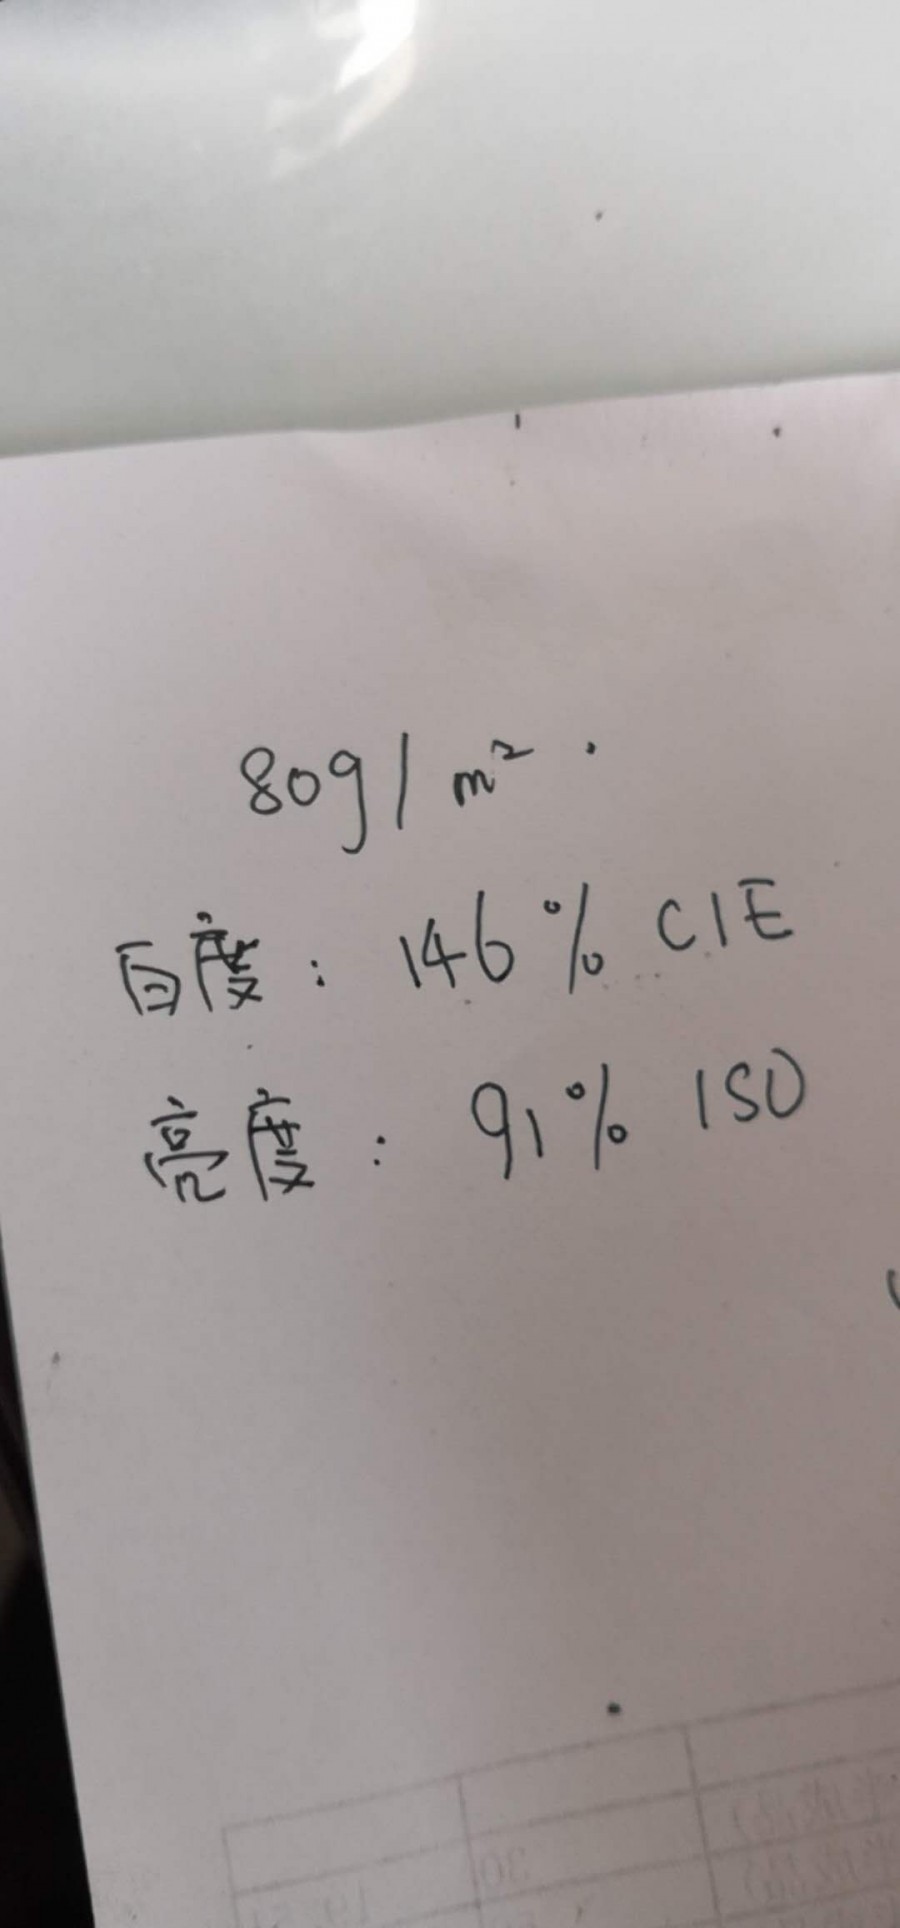 80g/m².
白度：146% CIE
亮度：91% ISO